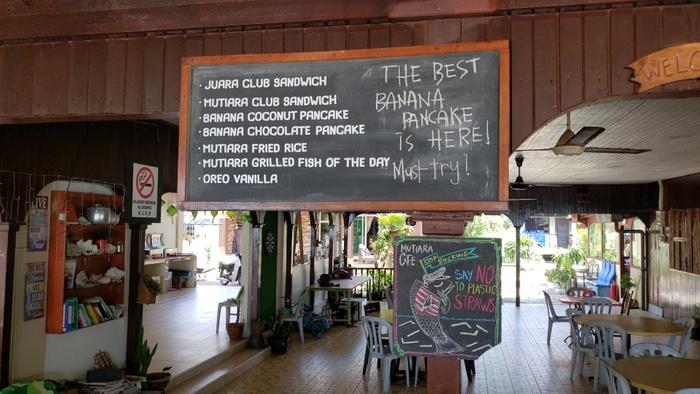 · JUARA CLUB SANDWICH
· MUTIARA CLUB SANDWICH
· BANANA COCONUT PANCAKE
· BANANA CHOCOLATE PANCAKE
· MUTIARA FRIED RICE
· MUTIARA GRILLED FISH OF THE DAY
· OREO VANILLA
THE BEST
BANANA
PANCAKE
IS HERE!
Must try!
WELC
MUTIARA
CAFE
STOP SUCKING
SAY NO
TO PLASTIC
STRAWS